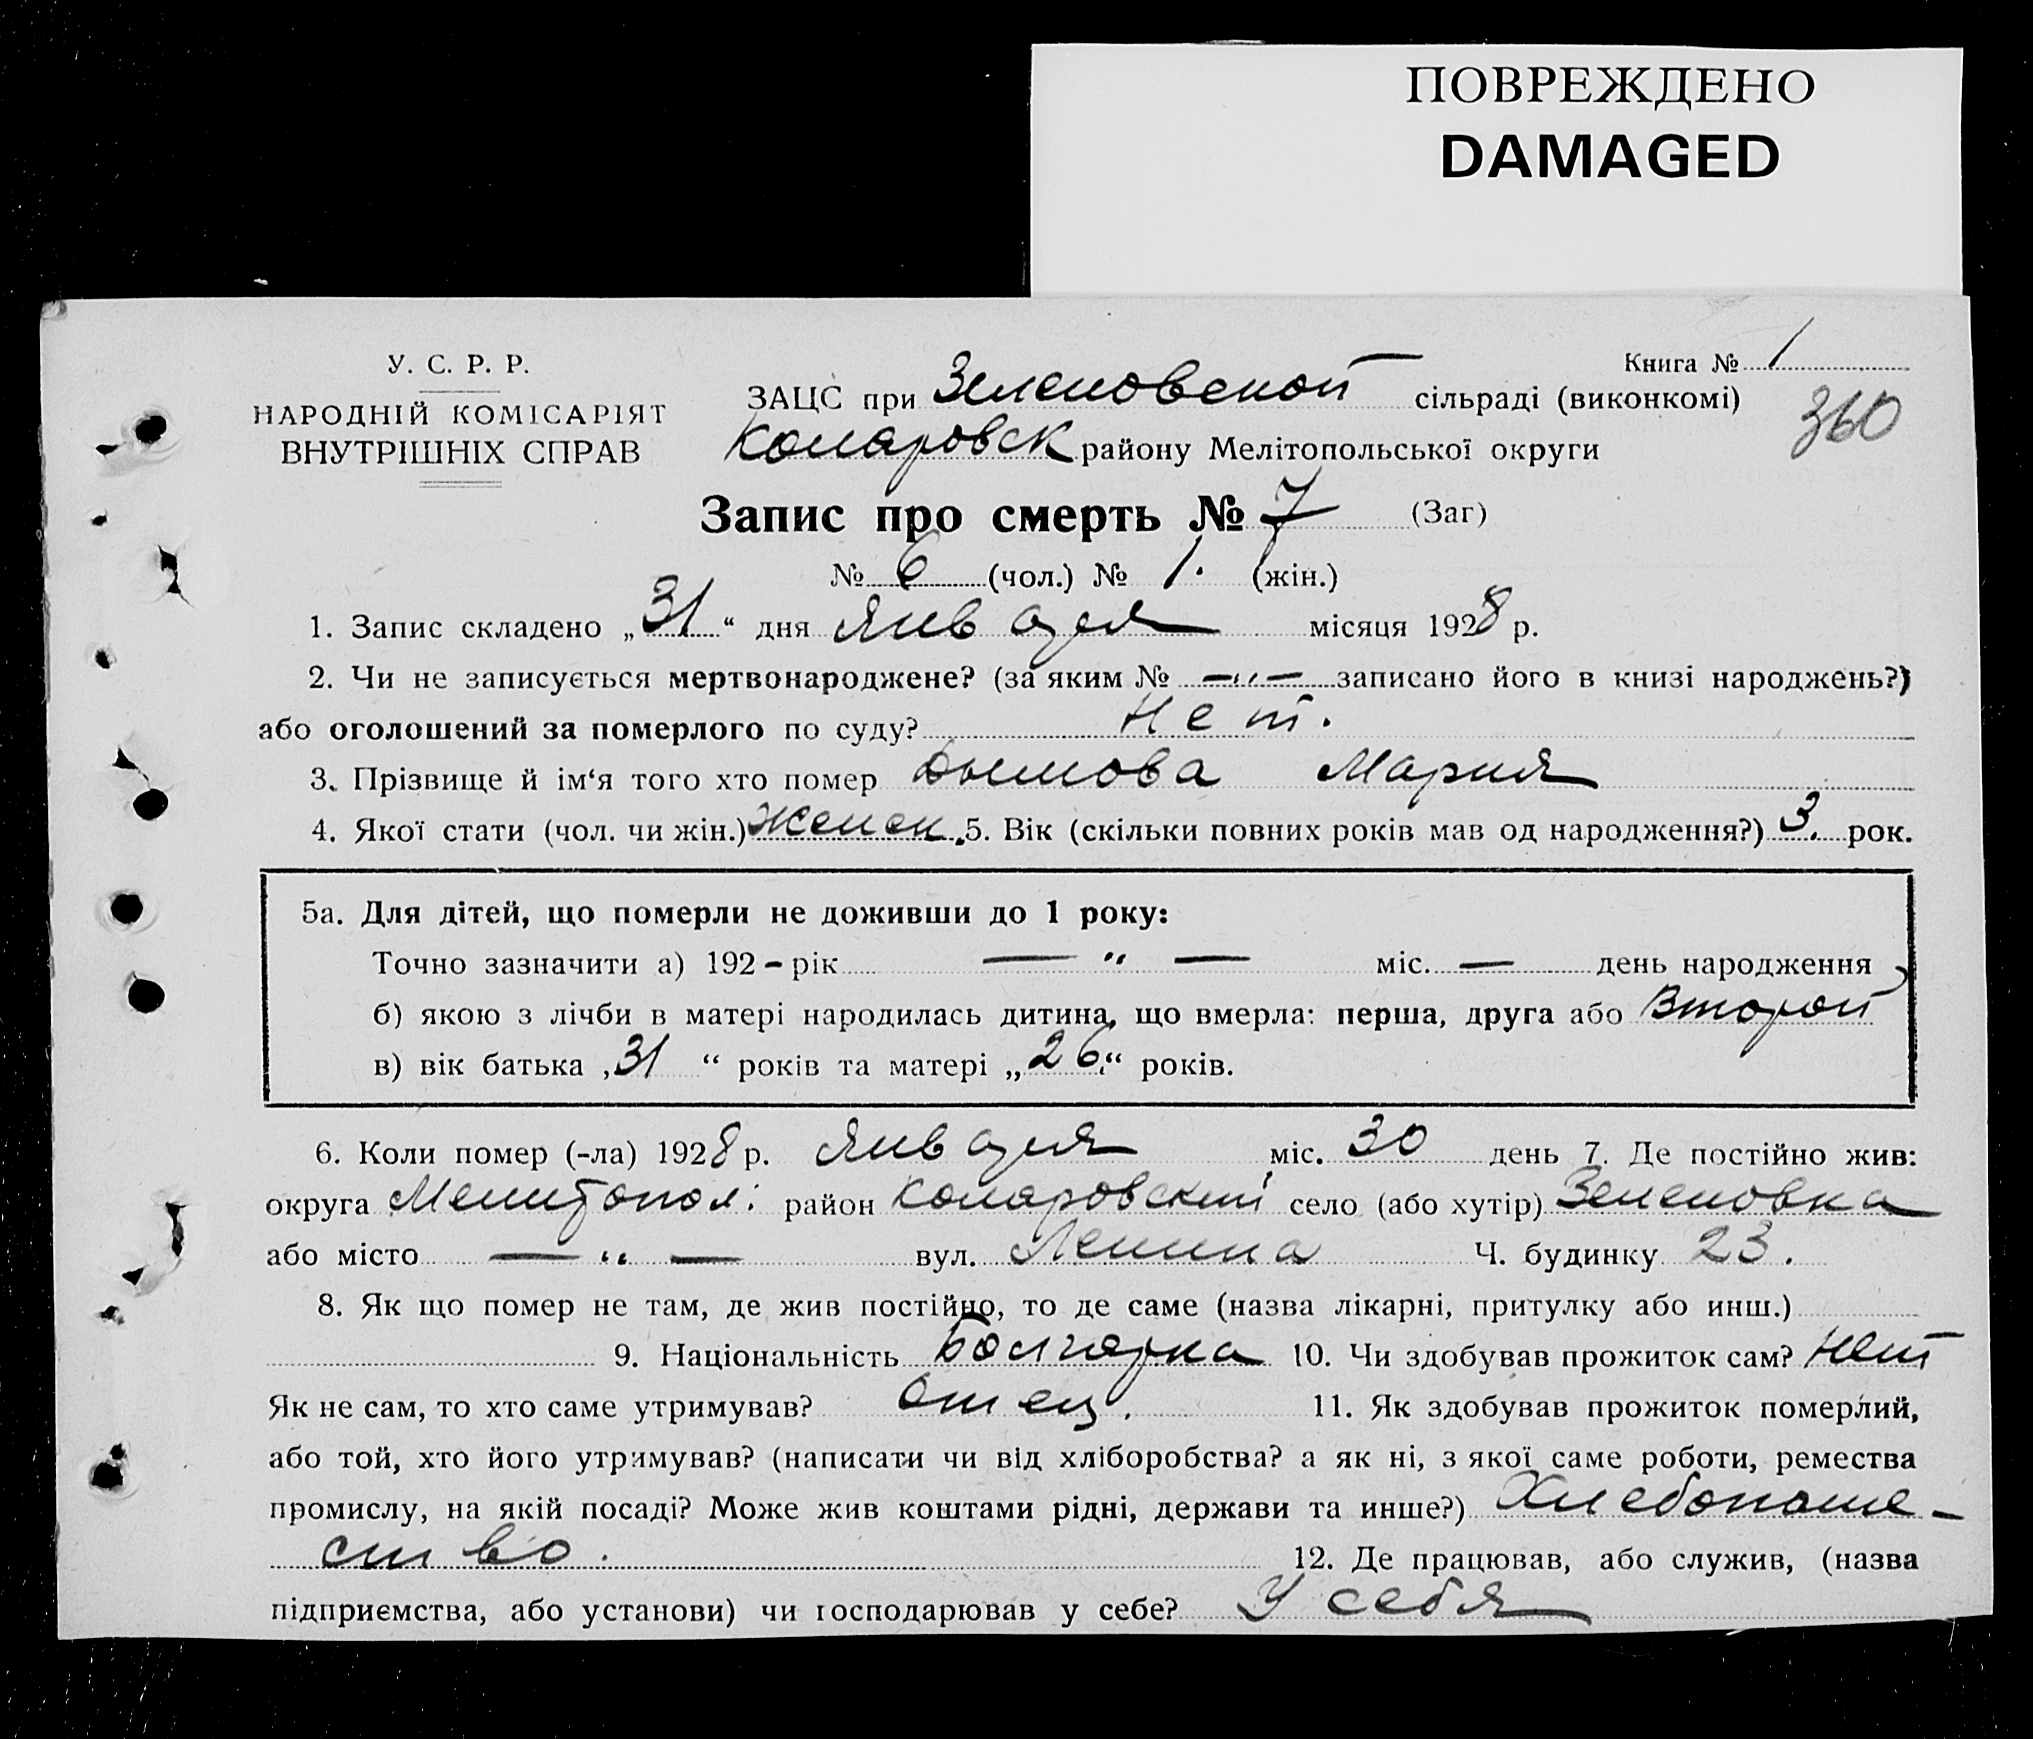 ПОВРЕЖДЕНО
DAMAGED
У. С. Р. Р.
НАРОДНІЙ КОМІСАРІЯТ
ВНУТРІШНІХ СПРАВ
Книга № 1
ЗАЦС при Зеленовской сільраді (виконкомі)
360
Коларовск району Мелітопольської округи
Запис про смерть № 7 (Заг)
№ 6 (чол.) № 1. (жін.)
1. Запис складено „31“ дня Января місяця 1928 р.
2. Чи не записується мертвонароджене? (за яким № —„— записано його в книзі народжень?)
або оголошений за померлого по суду? Нет.
3. Прізвище й ім‘я того хто помер Дымова Мария
4. Якої стати (чол. чи жін.) Женск. 5. Вік (скільки повних років мав од народження?) 3. рок.
5а. Для дітей, що померли не доживши до 1 року:
Точно зазначити а) 192 – рік — „ — міс. — день народження
б) якою з лічби в матері народилась дитина, що вмерла: перша, друга або Второй
в) вік батька „31“ років та матері „26.“ років.
6. Коли помер (-ла) 1928 р. Января міс. 30 день 7. Де постійно жив:
округа Мелитопол. район Коларовский село (або хутір) Зеленовка
або місто — „ — вул. Ленина Ч. будинку 23.
8. Як що помер не там, де жив постійно, то де саме (назва лікарні, притулку або инш.)
9. Національність Болгарка 10. Чи здобував прожиток сам? Нет
Як не сам, то хто саме утримував? Отец. 11. Як здобував прожиток померлий,
або той, хто його утримував? (написати чи від хліборобства? а як ні, з якої саме роботи, ремества
промислу, на якій посаді? Може жив коштами рідні, держави та инше?) Хлебопаше-
ство. 12. Де працював, або служив, (назва
підприємства, або установи) чи господарював у себе? У себя